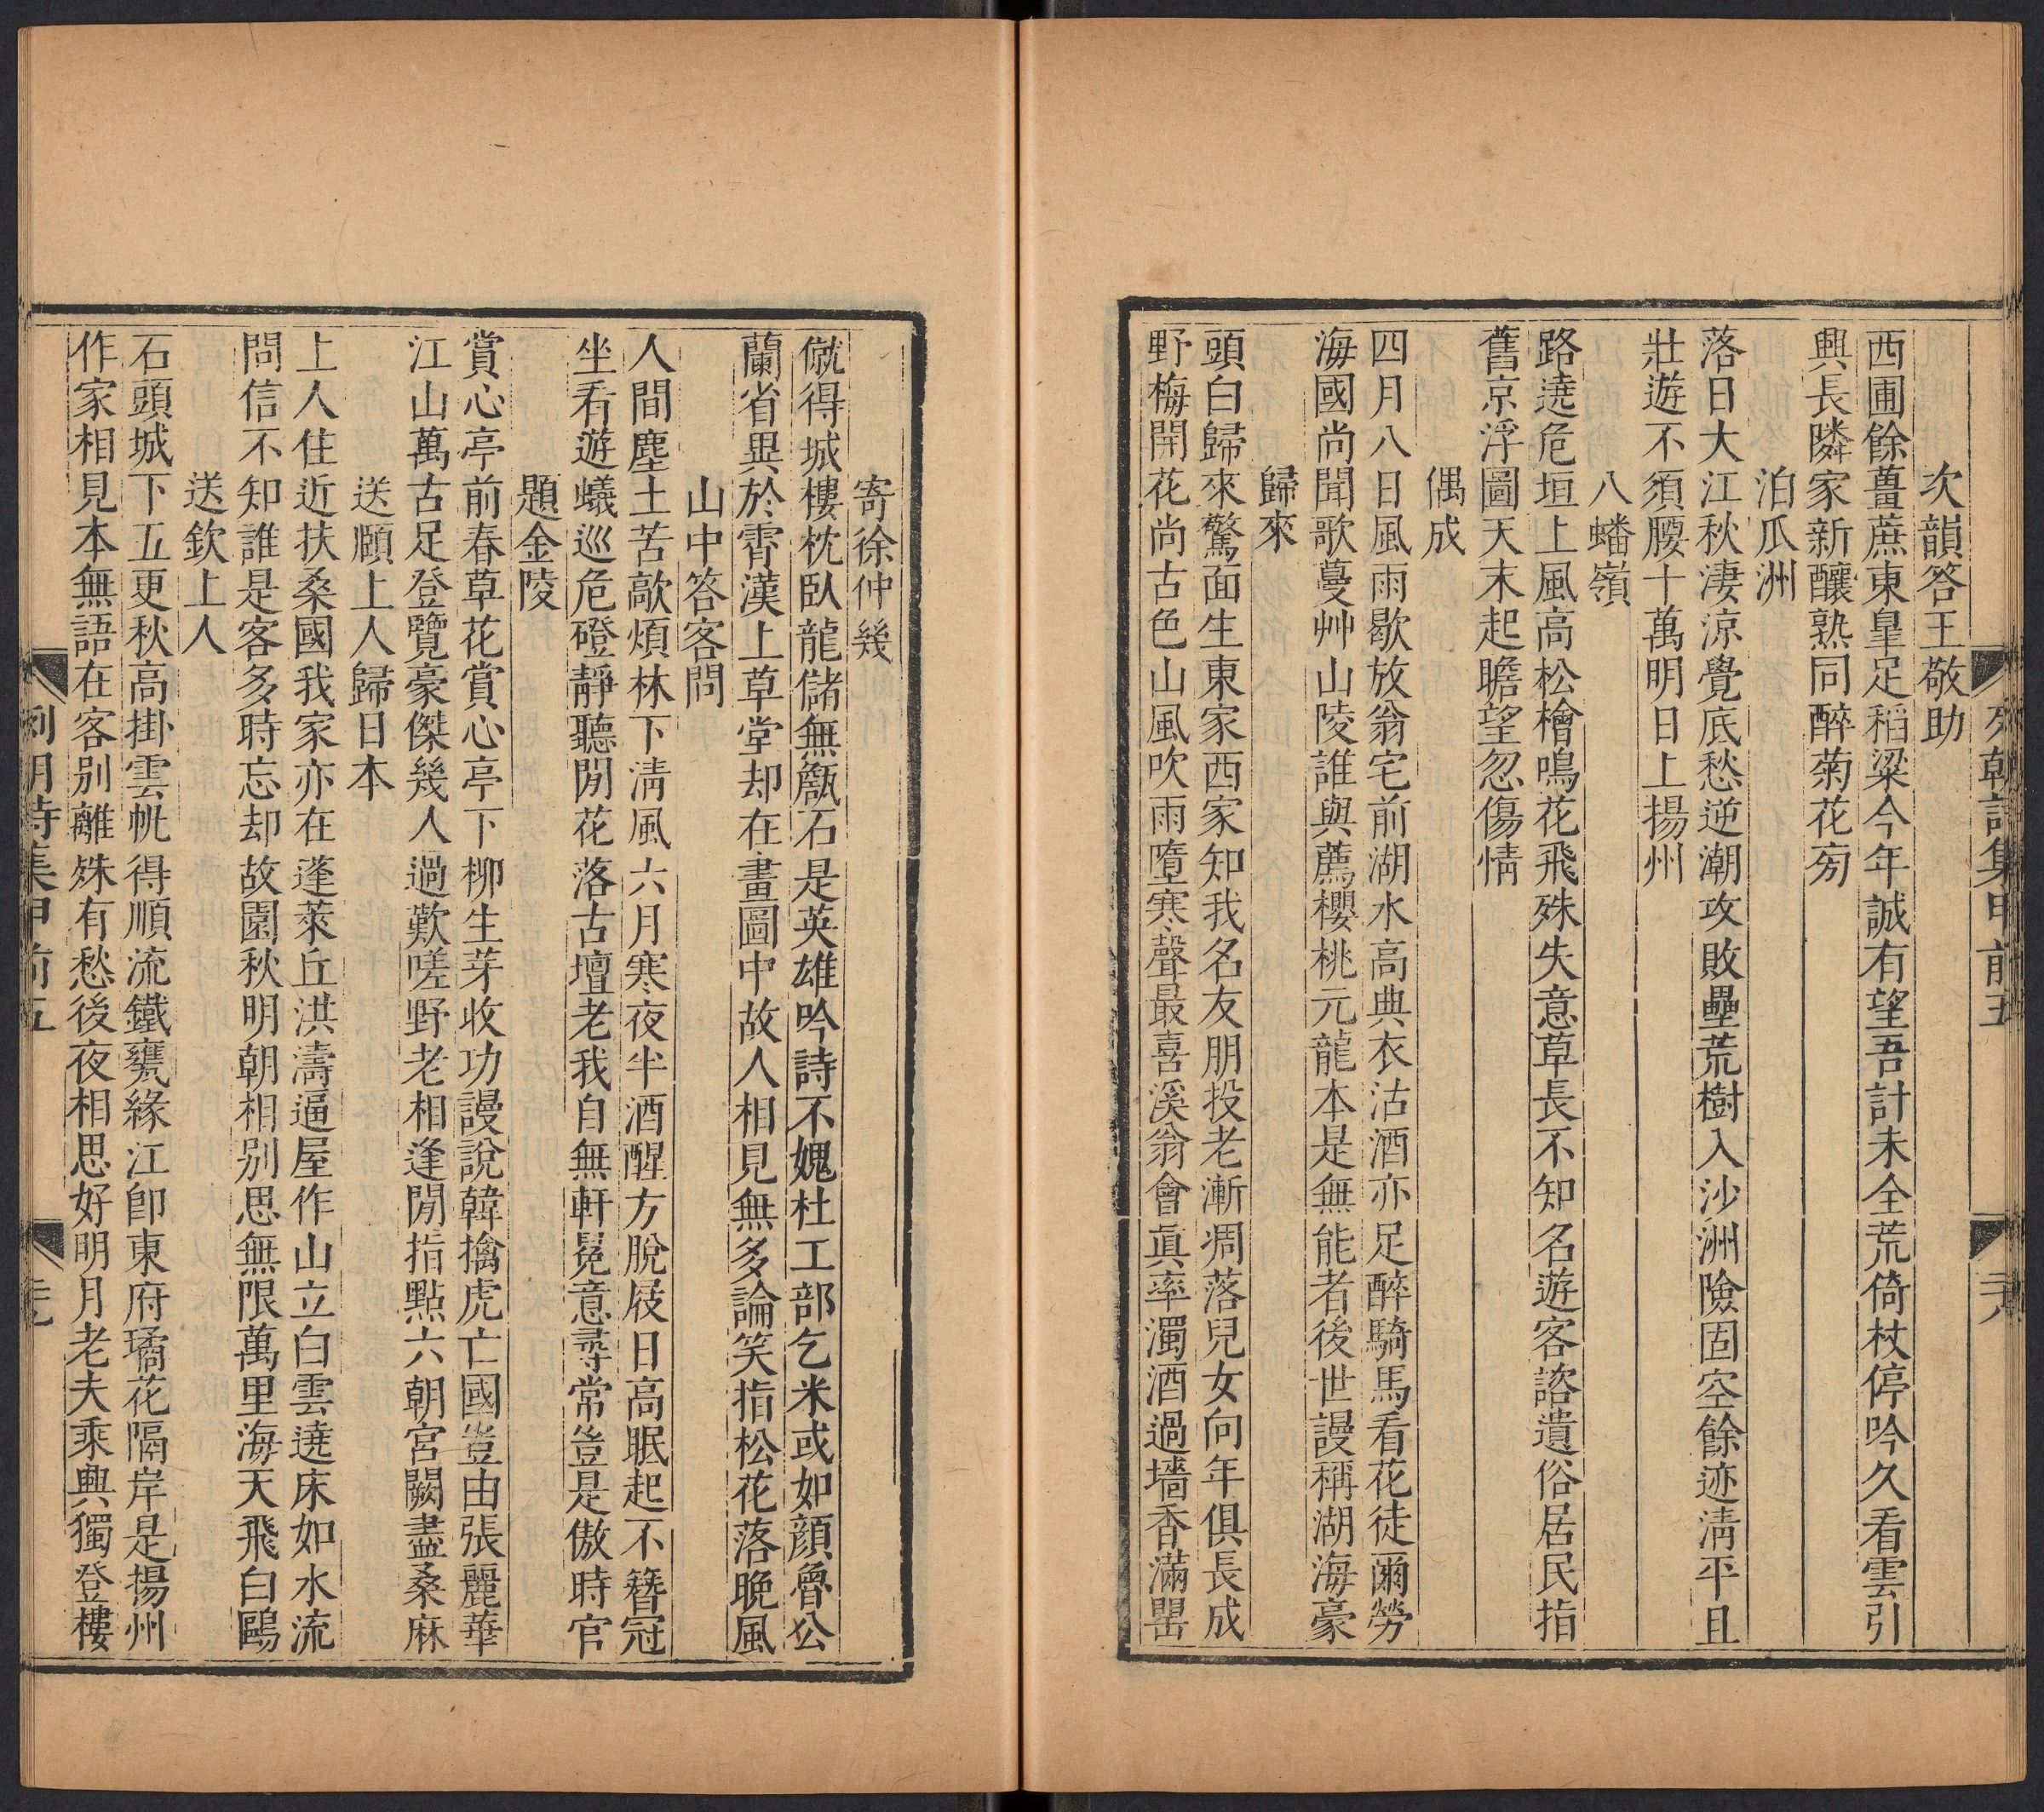 列朝詩集甲前五
三八
次韻答王敬助
西圃餘薑蔗東皐足稻粱今年誠有望吾計未全荒倚杖停吟久看雲引
興長隣家新釀熟同醉菊花旁
泊瓜洲
落日大江秋淒涼覺底愁逆潮攻敗壘荒樹入沙洲險固空餘迹淸平且
壯遊不須腰十萬明日上揚州
八蟠嶺
路遶危垣上風高松檜鳴花飛殊失意草長不知名遊客諮遺俗居民指
舊京浮圖天末起瞻望忽傷情
偶成
四月八日風雨歇放翁宅前湖水高典衣沽酒亦足醉騎馬看花徒爾勞
海國尚聞歌蔓艸山陵誰與薦櫻桃元龍本是無能者後世謾稱湖海豪
歸來
頭白歸來驚面生東家西家知我名友朋投老漸凋落兒女向年俱長成
野梅開花尚古色山風吹雨墮寒聲最喜溪翁會眞率濁酒過墻香滿罌
寄徐仲幾
僦得城樓枕臥龍儲無甔石是英雄吟詩不媿杜工部乞米或如顔魯公
蘭省異於霄漢上草堂却在畫圖中故人相見無多論笑指松花落晚風
山中答客問
人間塵土苦歊煩林下淸風六月寒夜半酒醒方脫屐日高眠起不簪冠
坐看遊蟻巡危磴靜聽閒花落古壇老我自無軒冕意尋常豈是傲時官
題金陵
賞心亭前春草花賞心亭下柳生芽收功謾說韓擒虎亡國豈由張麗華
江山萬古足登覽豪傑幾人過歎嗟野老相逢閒指點六朝宮闕盡桑麻
送頤上人歸日本
上人住近扶桑國我家亦在蓬萊丘洪濤逼屋作山立白雲遶床如水流
問信不知誰是客多時忘却故園秋明朝相別思無限萬里海天飛白鷗
送欽上人
石頭城下五更秋高掛雲帆得順流鐵甕緣江卽東府璚花隔岸是揚州
作家相見本無語在客別離殊有愁後夜相思好明月老夫乘興獨登樓
列朝詩集甲前五
三九